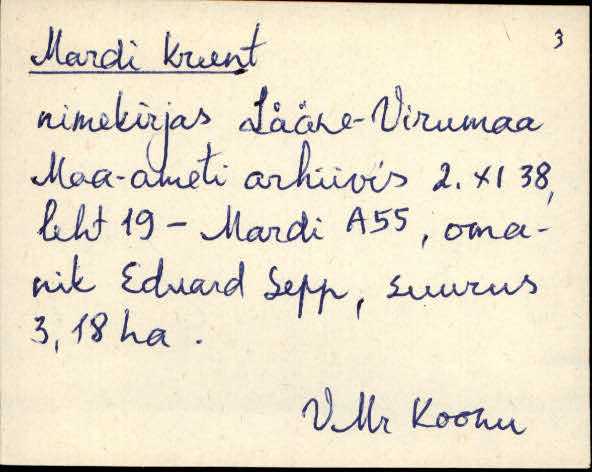 3
Mardi krunt
nimekirjas Lääne-Virumaa
Maa-ameti arhiivis 2. XI 38,
leht 19 - Mardi A55, oma-
nik Eduard Sepp, suurus
3,18 ha.
VMr Koonu